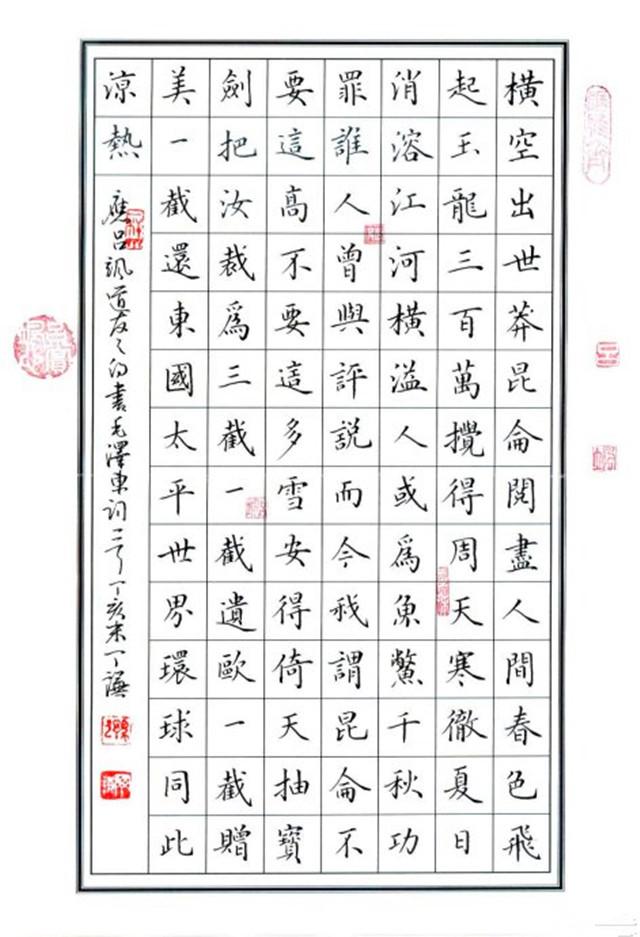 橫空出世莽昆侖閱盡人間春色飛
起玉龍三百萬攪得周天寒徹夏日
消溶江河橫溢人或爲魚鱉千秋功
罪誰人曾與評說而今我謂昆侖不
要這高不要這多雪安得倚天抽寶
劍把汝裁爲三截一截遺歐一截贈
美一截還東國太平世界環球同此
涼熱
應呂颯道友之書毛澤東詞丁亥末丁謙